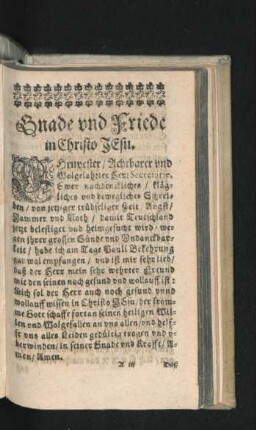 Gnade vnd Friede
in Christo JEsu.
Ehrnvester / Achtbarer vnd
Wolgelahrter Herr Secretarie,
Ewer nachdenckliches / kläg-
liches vnd bewegliches Schrei-
ben / von jetziger trübseliger Zeit Angst /
Jammer vnd Noth / damit Teutschland
jetzt belästiget vnd heimgesucht wird / we-
gen jhrer grossen Sünde vnd Vndanckbar-
keit / habe ich am Tage Pauli Bekehrung
gar wol empfangen / vnd ist mir sehr lieb /
daß der Herr mein sehr wehrter Freund
mit den seinen noch gesund vnd wollauff ist:
Mich sol der Herr auch noch gesund vnnd
wollauff wissen in Christo JEsu / der from-
me Gott schaffe fortan seinen heiligen Wil-
len vnd Wolgefallen an vns allen / vnd helf-
fe vns alles Leiden gedültig tragen vnd v-
berwinden / in seiner Gnade vnd Krafft / A-
men / Amen.
A iij Daß